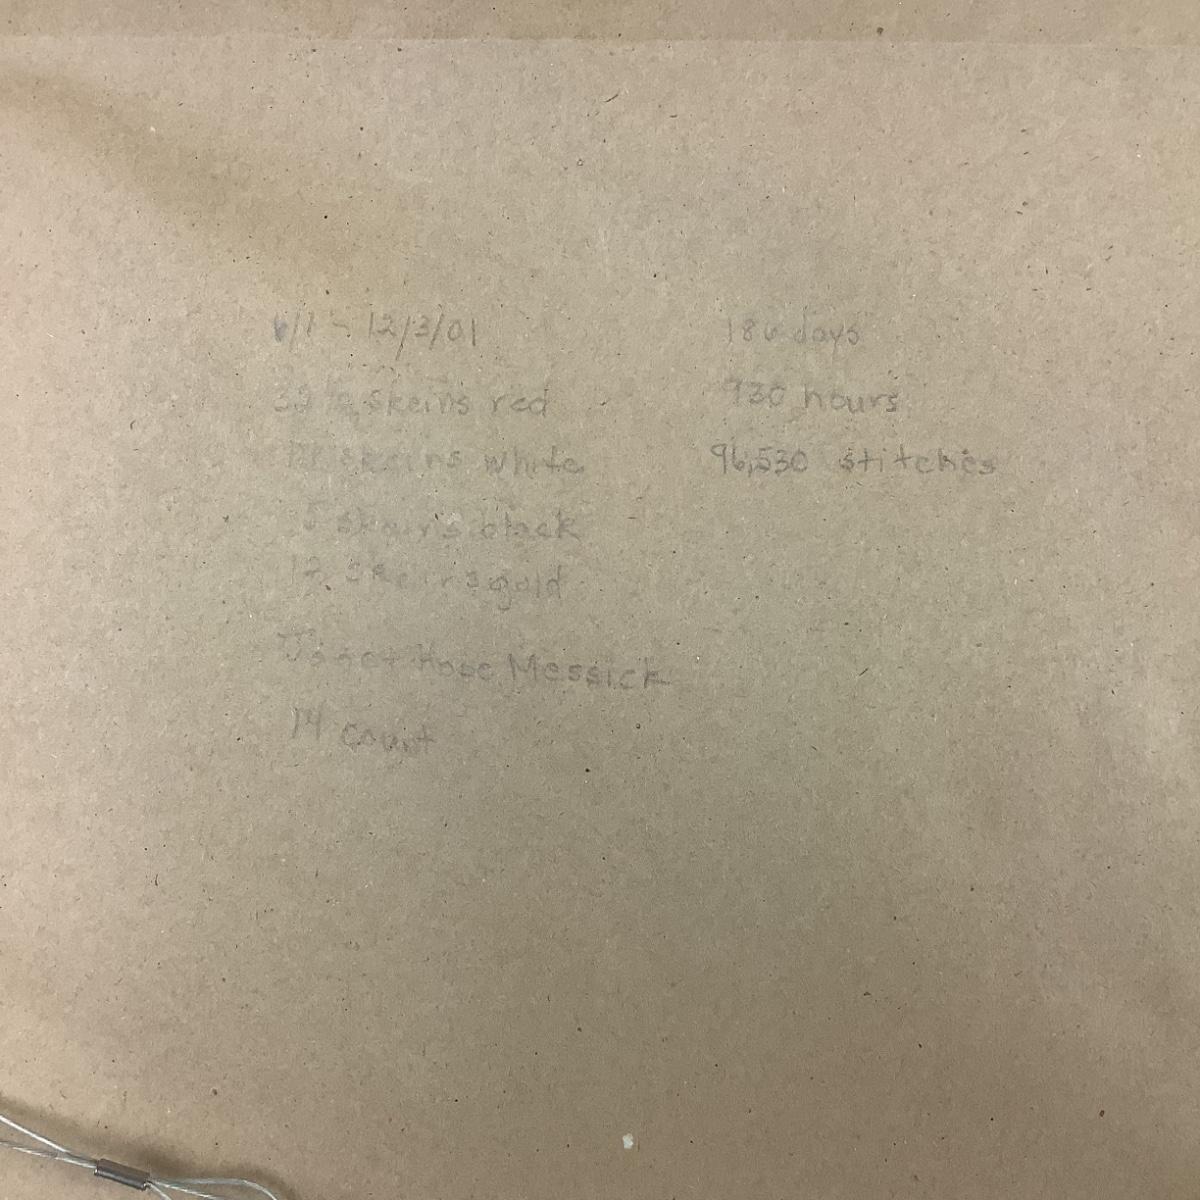 6/1 - 12/3/01
186 days
32 1/2 skeins red
930 hours
skeins white
96,530 stitches
5 skeins black
12 skeins gold
Janet Messick
14 count